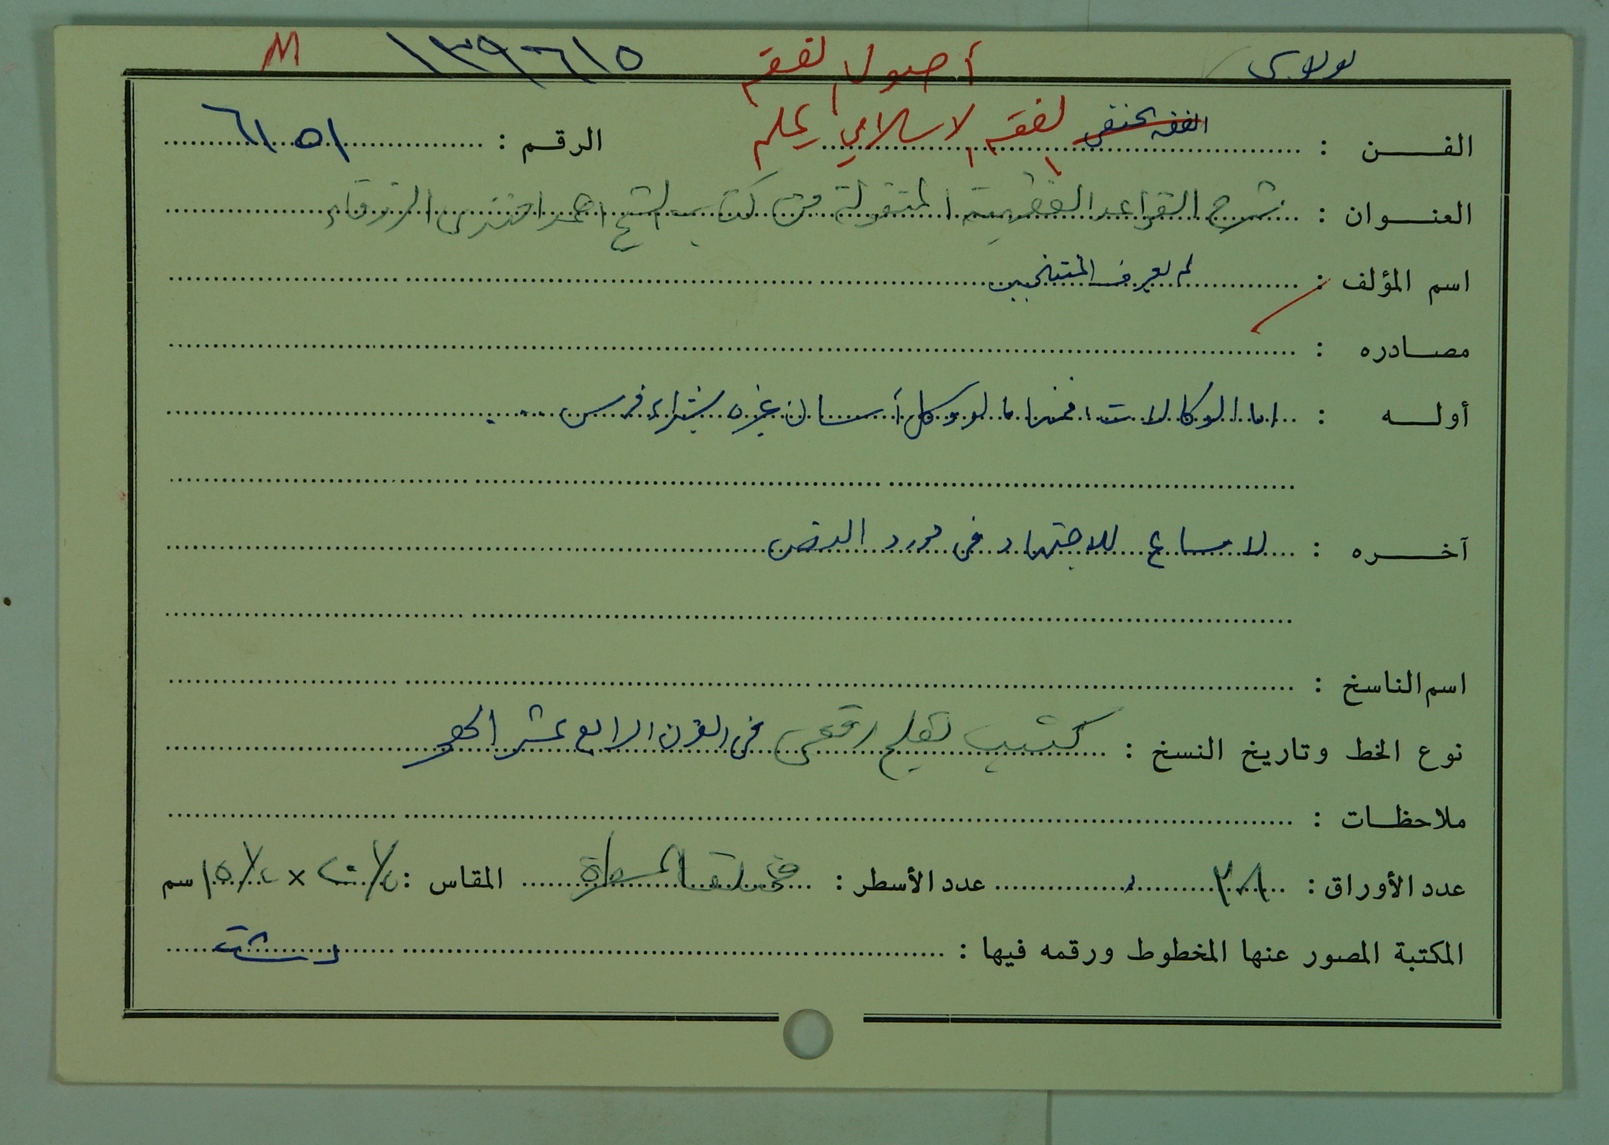 ١٣٩٦١٥ M
أصول الفقه
الفن : الفقه الحنفي الفقه الاسلامي الرقم : ٦١٥١
العنوان : شرح القواعد الفقهية المنقولة من كتاب الشيخ احمد افندي الزرقاء
اسم المؤلف : لم يعرف
مصادره :
أوله : اما الوكالات فمنها ما لو وكل أنسان غيره بشراء فرس ...
آخره : لا مساع للاجتهاد في مورد النص
اسم الناسخ :
نوع الخط وتاريخ النسخ : كتب بقلم رقعي في القرن الرابع عشر الهجر
ملاحظات :
عدد الأوراق : عدد الأسطر : مختلفة المسطرة المقاس : × سم
المكتبة المصور عنها المخطوط ورقمه فيها : دشت